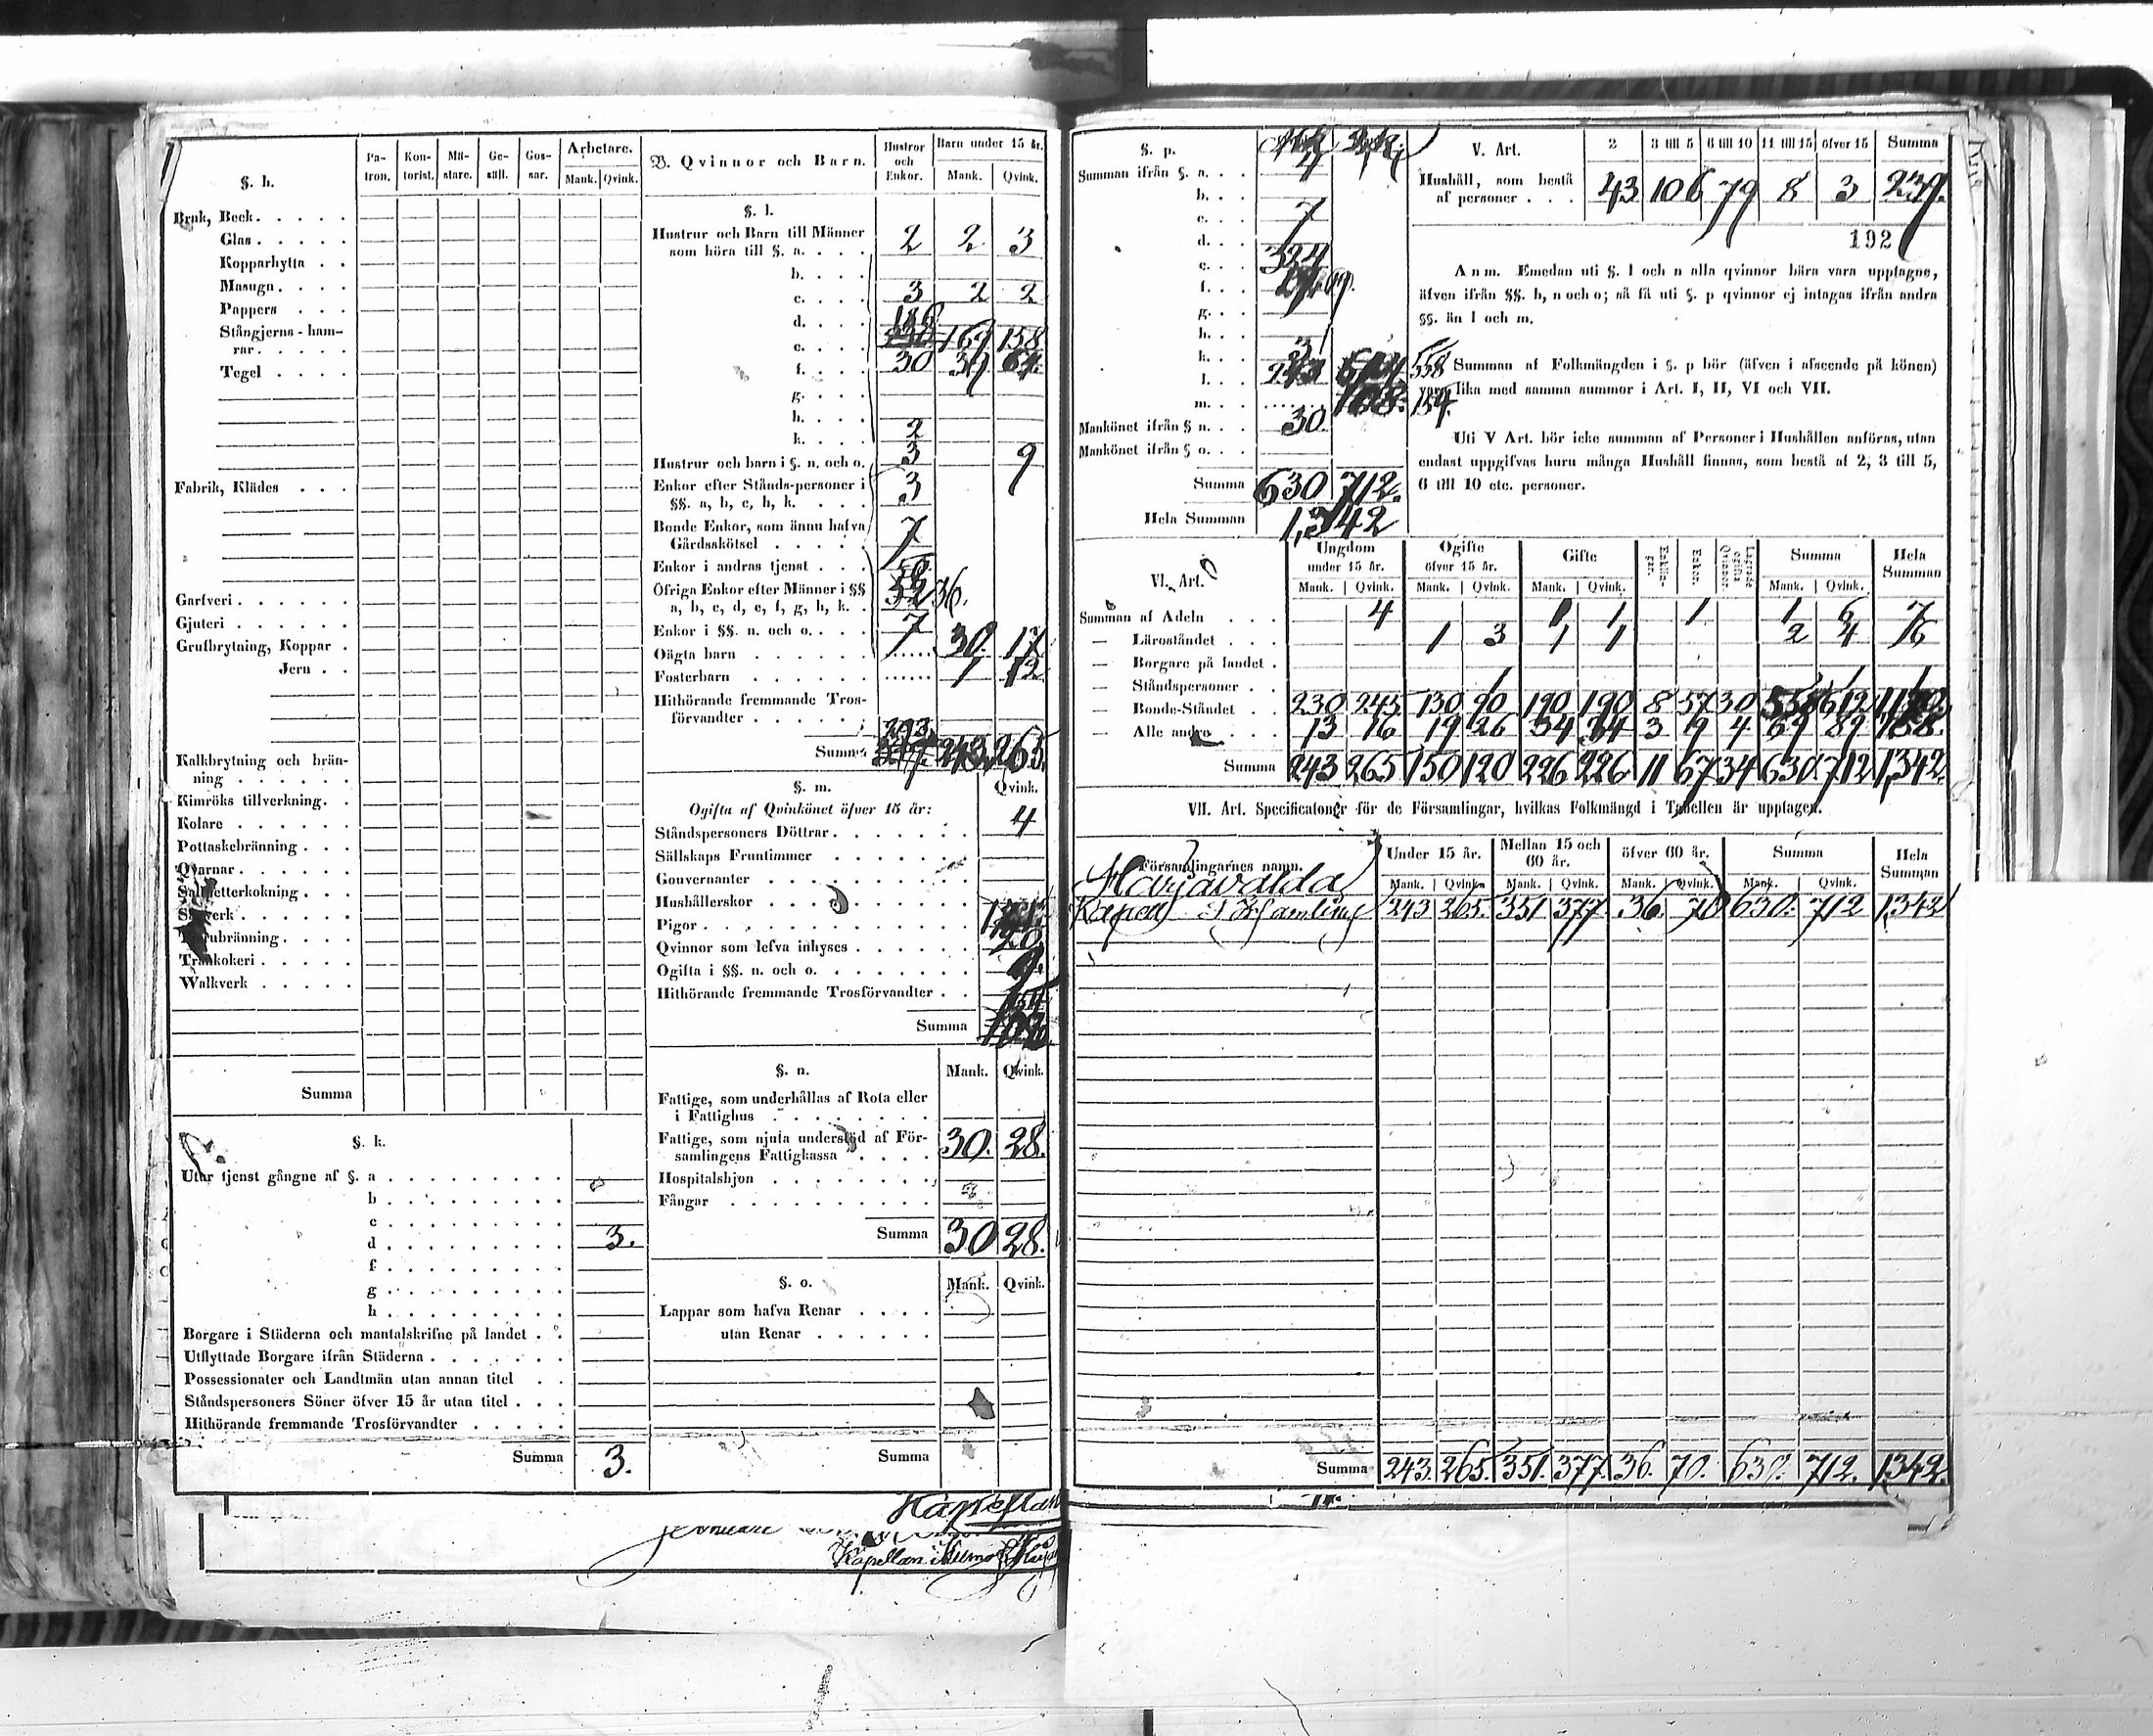 §. h.
Pa-tron. Kon-torist. Mä-stare. Ge-säll. Gos-sar. Arbetare.
Mank. Qvink.
Bruk, Beck
Glas
Kopparhytta
Masugn
Pappers
Stångjerns-ham-
rar
Tegel
Fabrik, Klädes
Garfveri
Gjuteri
Grufbrytning, Koppar
Jern
Kalkbrytning och brän-
ning
Kimröks tillverkning.
Kolare
Pottaskebränning
Qvarnar
Salpetterkokning
Sågverk
Trankokeri
Walkverk
Summa
§. k.
Utur tjenst gångne af §. a
b
c
d 3.
f
g
h
Borgare i Städerna och mantalskrifne på landet
Utflyttade Borgare ifrån Städerna
Possessionater och Landtmän utan annan titel
Ståndspersoners Söner öfver 15 år utan titel
Hithörande fremmande Trosförvandter
Summa 3.
B. Qvinnor och Barn. Hustror och Enkor. Barn under 15 år.
Mank. Qvink.
§. l.
Hustrur och Barn till Männer
som höra till §. a. 2 2 3
b.
c. 3 2 2
d.
e. 169 158
f. 30 39 64
g.
h.
k. 2
Hustrur och barn i §. n. och o. 3 9
Enkor efter Stånds-personer i
§§. a, b, c, h, k. 3
Bonde Enkor, som ännu hafva
Gårdsskötsel 7
Enkor i andras tjenst
Öfriga Enkor efter Männer i §§
a, b, c, d, e, f, g, h, k. 36.
Enkor i §§. n. och o. 7
Oägta barn 30. 17
Fosterbarn 1 12
Hithörande fremmande Tros-
förvandter
293.
Summa 243 265.
§. m. Qvink.
Ogifta af Qvinkönet öfver 15 år:
Ståndspersoners Döttrar 4
Sällskaps Fruntimmer
Gouvernanter
Hushållerskor
Pigor
Qvinnor som lefva inhyses 20
Ogifta i §§. n. och o. 9.
Hithörande fremmande Trosförvandter
Summa
§. n. Mank. Qvink.
Fattige, som underhållas af Rota eller
i Fattighus
Fattige, som njuta understöd af För-
samlingens Fattigkassa 30. 28.
Hospitalshjon
Fångar
Summa 30 28.
§. o. Mank. Qvink.
Lappar som hafva Renar
utan Renar
Summa
Kapellan
§. p.
Summan ifrån §. a. 4
b.
c. 7
d.
e. 324
f.
g.
h.
k. 3
l. 243 558
m. 154.
Mankönet ifrån § n. 30.
Mankönet ifrån § o.
Summa 630 712.
Hela Summan 1,342
V. Art. 2 3 till 5 6 till 10 11 till 15 öfver 15 Summa
Hushåll, som bestå
af personer 43 106 79 8 3 239.
192
Anm. Emedan uti §. l och n alla qvinnor böra vara upptagne,
äfven ifrån §§. b, n och o; så få uti §. p qvinnor ej intagas ifrån andra
§§. än l och m.
Summan af Folkmängden i §. p bör (äfven i afseende på könen)
vara lika med samma summor i Art. I, II, VI och VII.
Uti V Art. bör icke summan af Personer i Hushållen anföras, utan
endast uppgifvas huru många Hushåll finnas, som bestå af 2, 3 till 5,
6 till 10 etc. personer.
VI. Art. Ungdom under 15 år. Ogifte öfver 15 år. Gifte Enklin-gar. Enkor. Lägrade ogifta Qvinnor. Summa Hela Summan
Mank. Qvink. Mank. Qvink. Mank. Qvink. Mank. Qvink.
Summan af Adeln 4 1 1 1 1 6 7
— Läroståndet 1 3 1 1 2 4 6
— Borgare på landet
— Ståndspersoner 1 1 1
— Bonde-Ståndet 230 245 130 90 190 190 8 57 30 558 612 1170.
— Alle andre 13 16 19 26 34 34 3 9 4 69 89 158.
Summa 243 265 150 120 226 226 11 67 34 630 712 1,342.
VII. Art. Specificationer för de Församlingar, hvilkas Folkmängd i Tabellen är upptagen.
Församlingarnes namn. Under 15 år. Mellan 15 och 60 år. öfver 60 år. Summa Hela Summan
Mank. Qvink. Mank. Qvink. Mank. Qvink. Mank. Qvink.
Harjavalda
243 265. 351 377 36. 70 630. 712 1,342
Summa 243. 265. 351. 377. 36. 70. 630. 712. 1342.